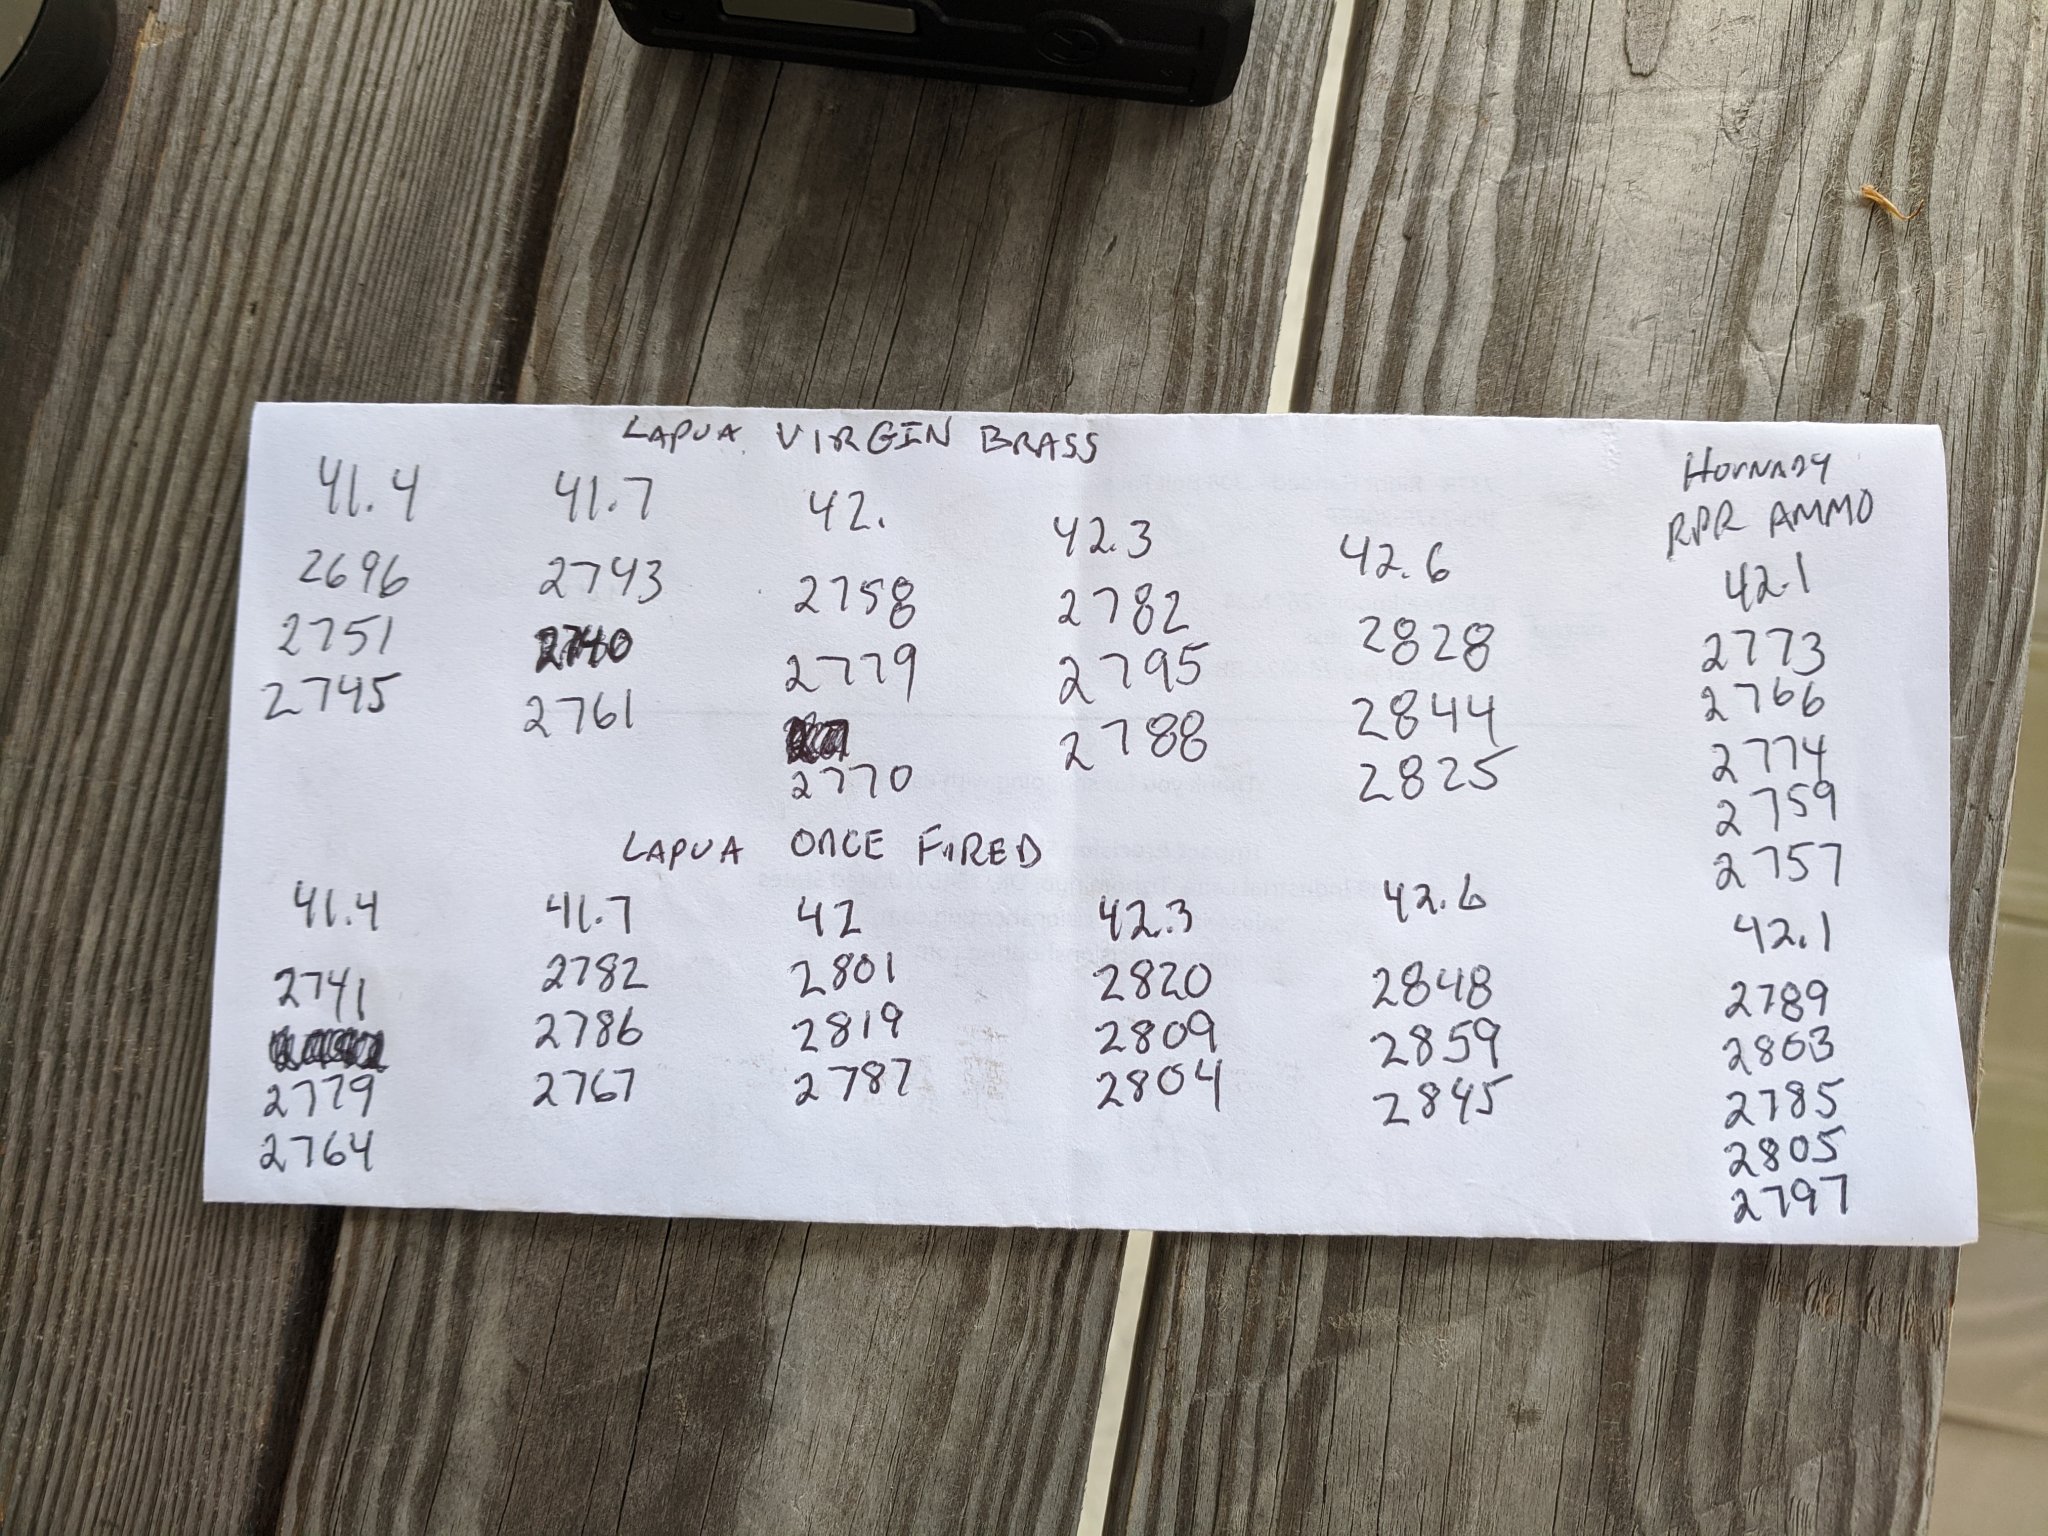 LAPUA VIRGIN BRASS
41.4 41.7 42. 42.3 42.6
2696 2743 2758 2782 2828
2751 2740 2779 2795 2844
2745 2761 2770 2788 2825
LAPUA ONCE FIRED
41.4 41.7 42 42.3 42.6
2741 2782 2801 2820 2848
2779 2786 2819 2809 2859
2764 2767 2787 2804 2845
HORNADY
RPR AMMO
42.1
2773
2766
2774
2759
2757
42.1
2789
2803
2785
2805
2797